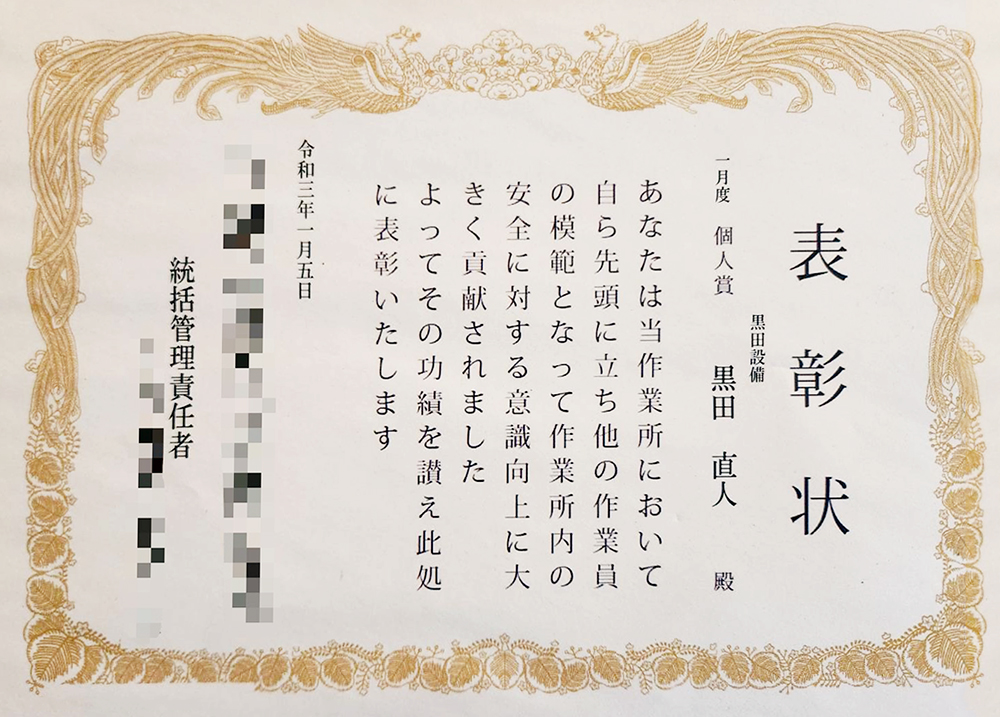 表彰状
黒田設備
一月度 個人賞 黒田 直人 殿
あなたは当作業所において
自ら先頭に立ち他の作業員
の模範となって作業所内の
安全に対する意識向上に大
きく貢献されました
よってその功績を讃え此処
に表彰いたします
令和三年一月五日
統括管理責任者